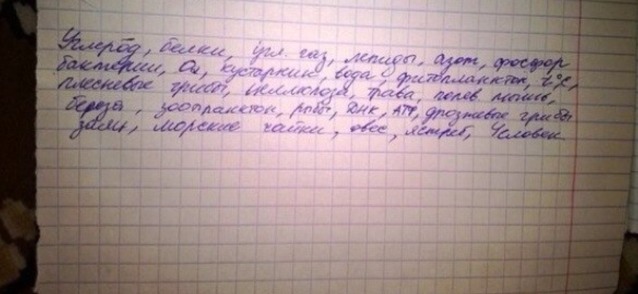 Углерод, белки, угл. газ, липиды, азот, фосфор
бактерии, O₂, кустарники, вода, фитопланктон, t°C,
плесневые грибы, целлюлоза, трава, полев. мышь,
береза, зоопланктон, рыбы, ДНК, АТФ, дрожжевые грибы
заяц, морские чайки, овес, ястреб, человек